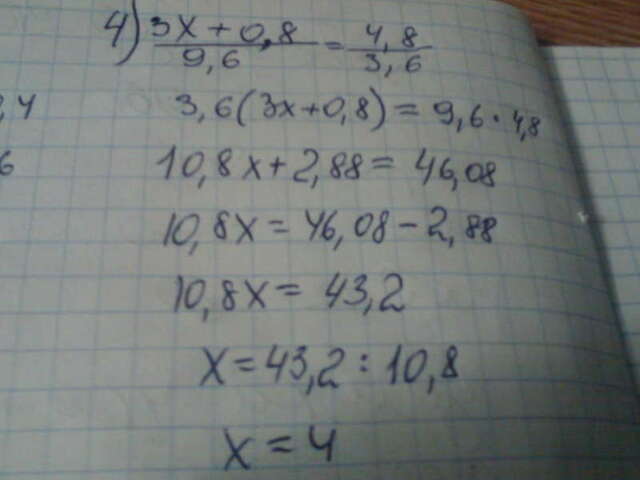 4) (3x+0,8)/9,6 = 4,8/3,6
,4 3,6(3x+0,8)=9,6·4,8
6 10,8x+2,88=46,08
10,8x=46,08-2,88
10,8x=43,2
x=43,2:10,8
x=4